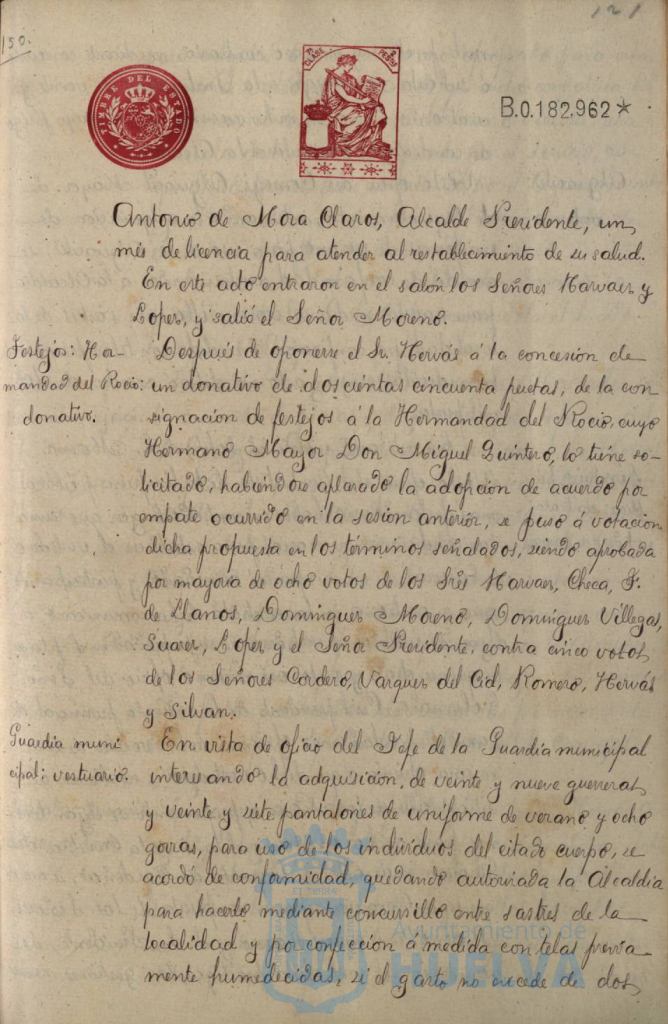 150.
121
TIMBRE DEL ESTADO
7ª CLASE
PESETAS
B.0.182,962*
Antonio de Mora Claros, Alcalde Presidente, un
més de licencia para atender al restablecimiento de su salud.
En este acto entraron en el salón los Señores Narvaez y
Lopez, y salió el Señor Moreno.
Festejos: Her-
mandad del Rocio:
donativo.
Después de oponerse el Sr. Hervás á la concesion de
un donativo de doscientas cincuenta pesetas, de la con
signacion de festejos á la Hermandad del Rocio, cuyo
Hermano Mayor Don Miguel Quintero, lo tiene so-
licitado, habiendose aplazado la adopcion de acuerdo por
empate ocurrido en la sesion anterior, se puso á votacion
dicha propuesta en los términos señalados, siendo aprobada
por mayoria de ocho votos de los Srēs Narvaez, Checa, F.
de Llanos, Dominguez Moreno, Dominguez Villegas,
Suarez, Lopez y el Señor Presidente, contra cinco votos
de los Señores Cordero, Vazquez del Cid, Romero, Hervás
y Silvan.
Guardia muni
cipal: vestuario.
En vista de oficio del Jefe de la Guardia municipal
interesando la adquisicion, de veinte y nueve guerreras
y veinte y siete pantalones de uniforme de verano y ocho
gorras, para uso de los individuos del citado cuerpo, se
acordó de conformidad, quedando autorizada la Alcaldia
para hacerlo mediante concursillo entre sastres de la
localidad y por confeccion á medida con telas previa
mente humedecidas, si el gasto no excede de dos
Ayuntamiento de
HUELVA